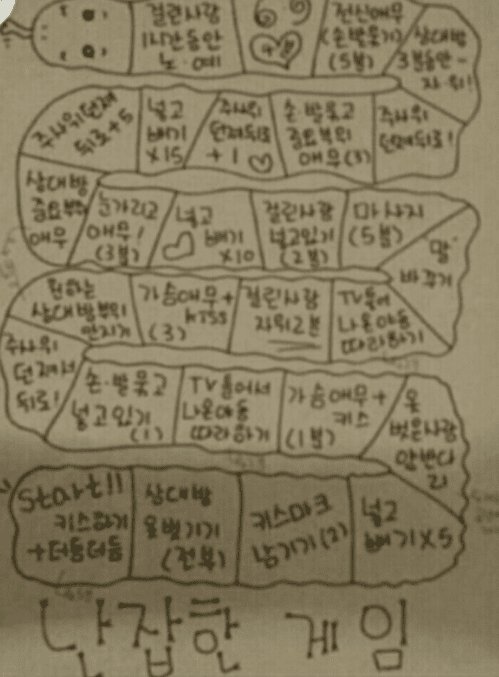 걸린사람
1시간동안
노·예
전신애무
(손발묶기)
(5분)
상대방
3분동안-
자·위!
주사위던져
뒤로+5
넣고
빼기
X15
주사위
던져뒤로
+1♡
손·발묶고
중요부위
애무(3)
주사위
던져뒤로!
상대방
중요부위
애무
눈가리고
애무!
(3분)
넣고
♡빼기
X10
걸린사람
넣고있기
(2분)
마사지
(5분)
말
바꾸기
원하는
상대방부위
만지기
가슴애무+
KISS
(3)
걸린사람
자위2분
TV틀어
나온야동
따라하기
주사위
던져서
뒤로!
손·발묶고
넣고있기
(1)
TV틀어서
나온야동
따라하기
가슴애무+
키스
(1분)
옷
벗은사람
앞반다
리
Start!!
키스하기
+더듬더듬
상대방
옷벗기기
(전부)
키스마크
남기기(2)
넣고
빼기X5
난잡한 게임